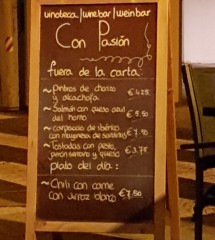 vinoteca/winebar/weinbar
Con Pasión
fuera de la carta:
~Pintxos de chorizo
y alcachofa €4.25
~Salmón con queso azul
del horno €5.50
~carpaccio de ibérico
con mayonesa de €7.50
~Tostadas con pesto,
jamón serrano y queso €3.75
plato del día:
~Chili con carne
con arroz blanco €7.50